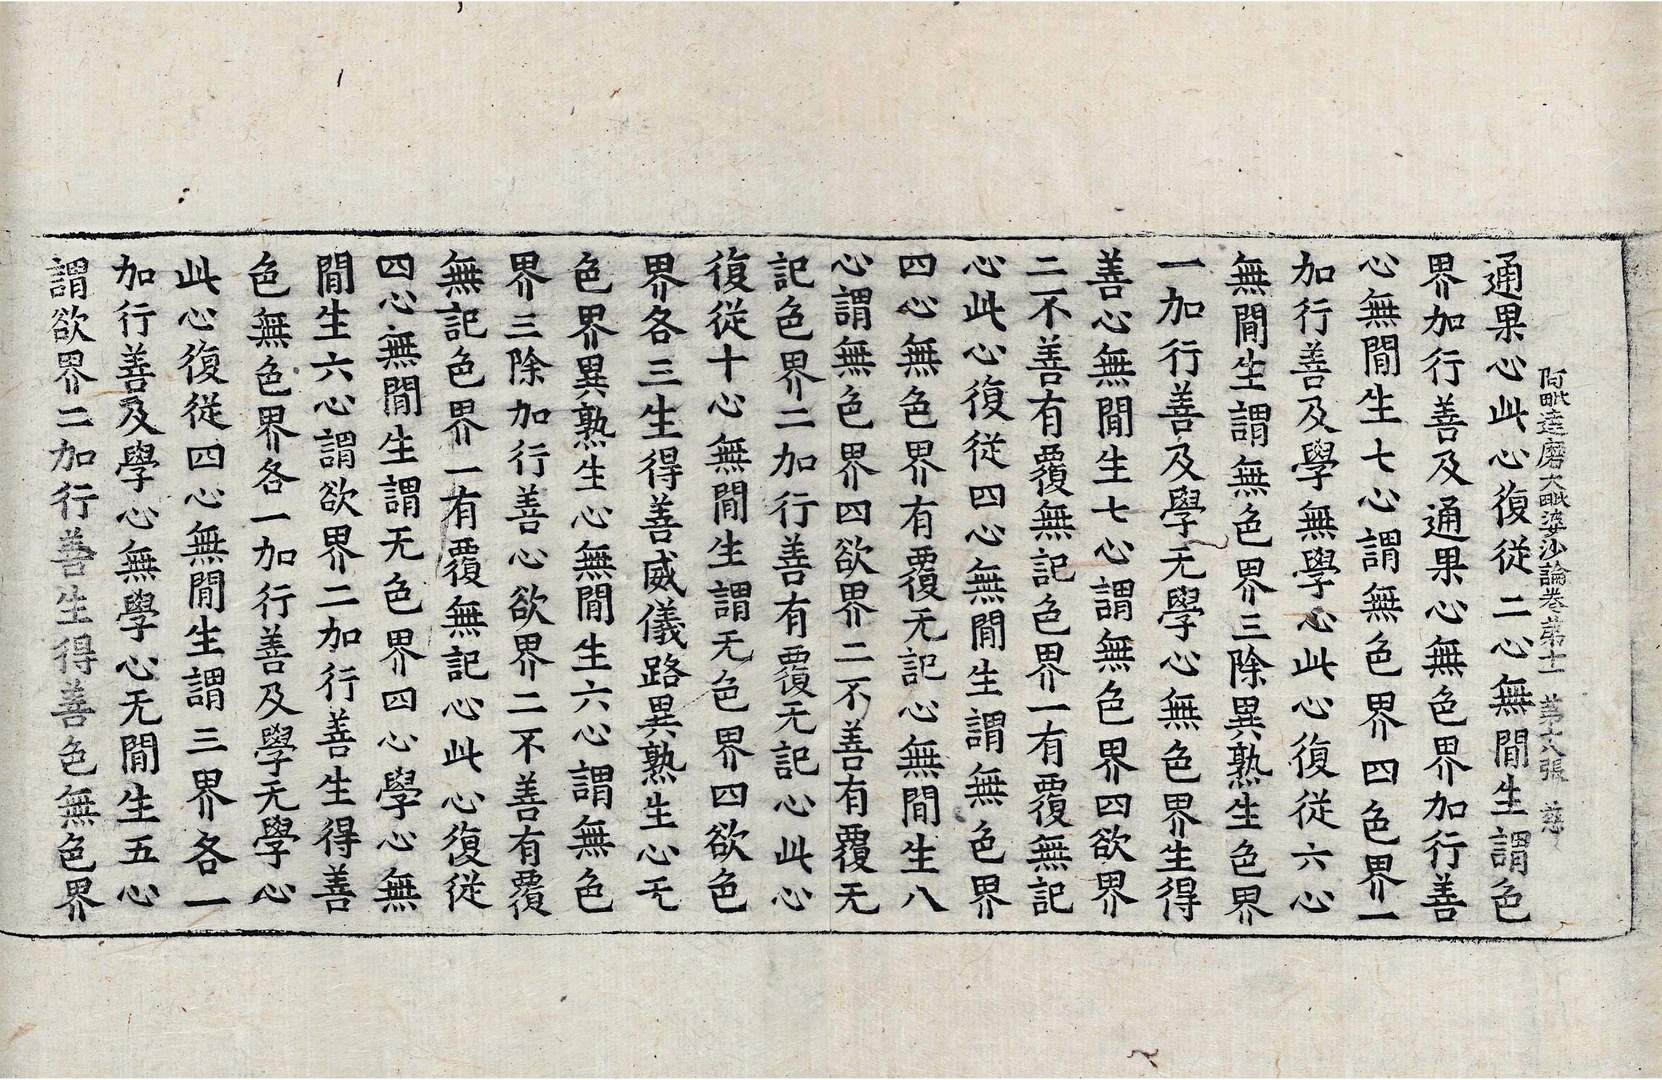 阿毗達磨大毗婆沙論卷第十一 第六張 慈
通果心此心復從二心無間生謂色
界加行善及通果心無色界加行善
心無間生七心謂無色界四色界一
加行善及學無學心此心復從六心
無間生謂無色界三除異熟生色界
一加行善及學无學心無色界生得
善心無間生七心謂無色界四欲界
二不善有覆無記色界一有覆無記
心此心復從四心無間生謂無色界
四心無色界有覆无記心無間生八
心謂無色界四欲界二不善有覆无
記色界二加行善有覆无記心此心
復從十心無間生謂无色界四欲色
界各三生得善威儀路異熟生心无
色界異熟生心無間生六心謂無色
界三除加行善心欲界二不善有覆
無記色界一有覆無記心此心復從
四心無間生謂无色界四心學心無
間生六心謂欲界二加行善生得善
色無色界各一加行善及學无學心
此心復從四心無間生謂三界各一
加行善及學心無學心无間生五心
謂欲界二加行善生得善色無色界